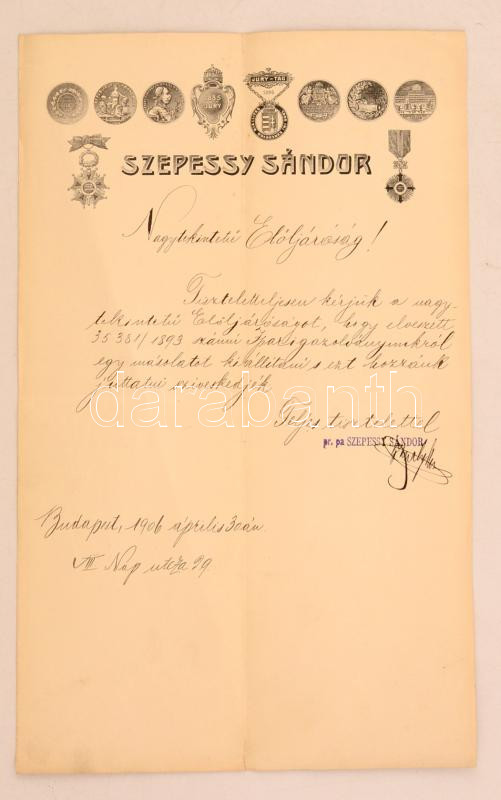 1885 JURY
JURY-TAG
1896
SZEPESSY SÁNDOR
Nagytekintetü Elöljáróság!
Tisztelettel­jesen kérjük a nagy-
tekintetü Elöljáróságot, hogy elveszett
35381/1893 számu Iparigazolványunkról
egy másolatot kiállitani s ezt hozzánk
juttatni sziveskedjék
Teljes tisztelettel
pr. pa SZEPESSY SÁNDOR
Budapest, 1906 április 30án
VIII Nap utcza 29.
darabanth